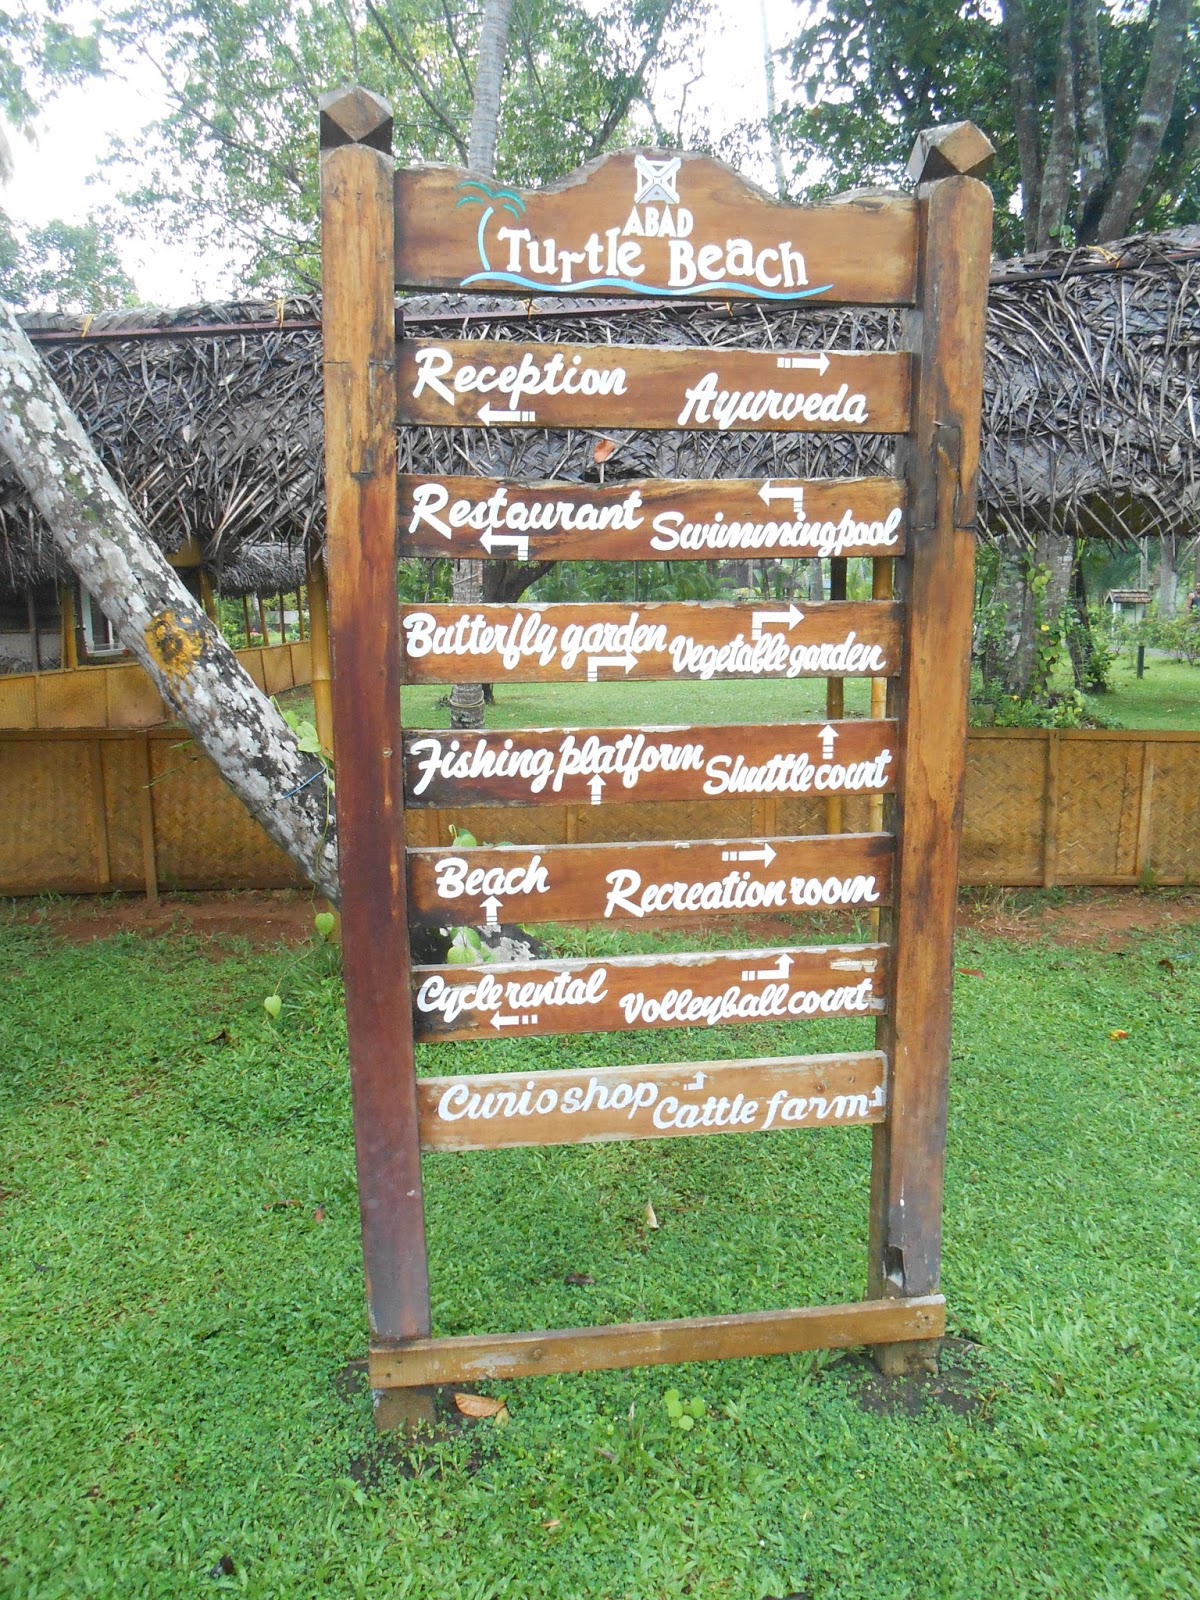 ABAD
Turtle Beach
Reception Ayurveda
Restaurant Swimmingpool
Butterfly garden Vegetable garden
Fishing platform Shuttle court
Beach Recreation room
Cycle rental Volleyball court
Curio shop Cattle farm